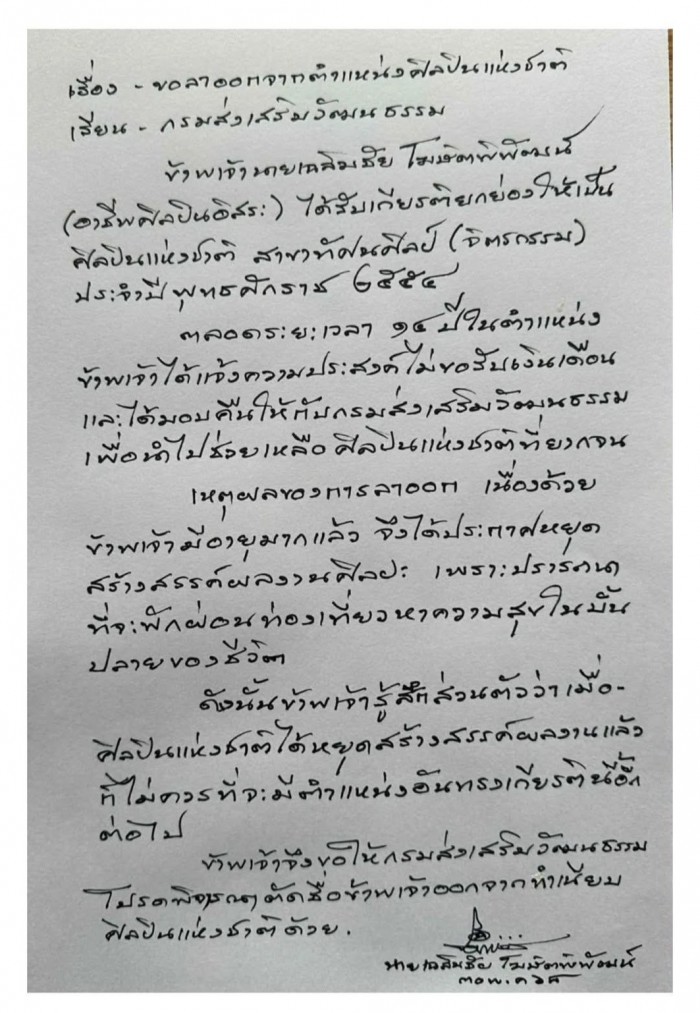 เรื่อง - ขอลาออกจากตำแหน่งศิลปินแห่งชาติ
เรียน - กรมส่งเสริมวัฒนธรรม
ข้าพเจ้านายเฉลิมชัย โฆษิตพิพัฒน์
(อาชีพศิลปินอิสระ) ได้รับเกียรติยกย่องให้เป็น
ศิลปินแห่งชาติ สาขาทัศนศิลป์ (จิตรกรรม)
ประจำปี พุทธศักราช ๒๕๕๔
ตลอดระยะเวลา ๑๔ ปีในตำแหน่ง
ข้าพเจ้าได้แจ้งความประสงค์ไม่ขอรับเงินเดือน
และได้มอบคืนให้กับกรมส่งเสริมวัฒนธรรม
เพื่อนำไปช่วยเหลือศิลปินแห่งชาติที่ยากจน
เหตุผลของการลาออก เนื่องด้วย
ข้าพเจ้ามีอายุมากแล้ว จึงได้ประกาศหยุด
สร้างสรรค์ผลงานศิลปะ เพราะปรารถนา
ที่จะพักผ่อนท่องเที่ยวหาความสุขในบั้น
ปลายของชีวิต
ดังนั้นข้าพเจ้ารู้สึกส่วนตัวว่าเมื่อ-
ศิลปินแห่งชาติได้หยุดสร้างสรรค์ผลงานแล้ว
ก็ไม่ควรที่จะมีตำแหน่งอันทรงเกียรตินี้อีก
ต่อไป
ข้าพเจ้าจึงขอให้กรมส่งเสริมวัฒนธรรม
โปรดพิจารณาตัดชื่อข้าพเจ้าออกจากทำเนียบ
ศิลปินแห่งชาติด้วย.
นายเฉลิมชัย โฆษิตพิพัฒน์